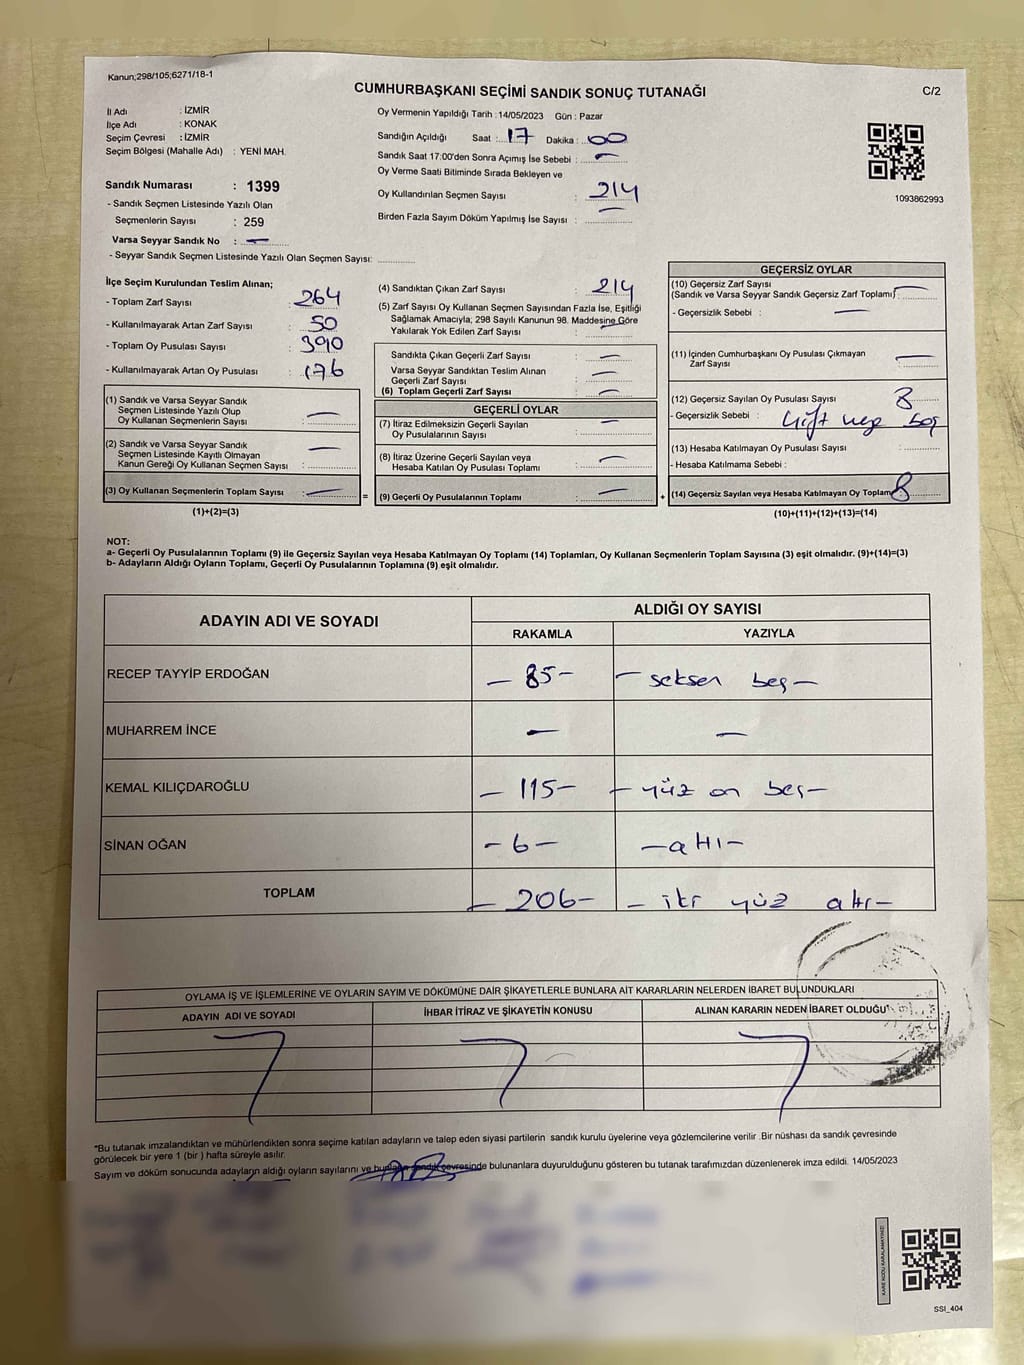 Kanun;298/105;6271/18-1
CUMHURBAŞKANI SEÇİMİ SANDIK SONUÇ TUTANAĞI
C/2
İl Adı : İZMİR
İlçe Adı : KONAK
Seçim Çevresi : İZMİR
Seçim Bölgesi (Mahalle Adı) : YENİ MAH.
Sandık Numarası : 1399
- Sandık Seçmen Listesinde Yazılı Olan
Seçmenlerin Sayısı : 259
Varsa Seyyar Sandık No : —
- Seyyar Sandık Seçmen Listesinde Yazılı Olan Seçmen Sayısı:
Oy Vermenin Yapıldığı Tarih :14/05/2023 Gün : Pazar
Sandığın Açıldığı Saat : 17 Dakika : 00
Sandık Saat 17:00'den Sonra Açımış İse Sebebi : —
Oy Verme Saati Bitiminde Sırada Bekleyen ve
Oy Kullandırılan Seçmen Sayısı : 214
Birden Fazla Sayım Döküm Yapılmış İse Sayısı : —
1093862993
İlçe Seçim Kurulundan Teslim Alınan;
- Toplam Zarf Sayısı : 264
- Kullanılmayarak Artan Zarf Sayısı : 50
- Toplam Oy Pusulası Sayısı : 390
- Kullanılmayarak Artan Oy Pusulası : 176
(1) Sandık ve Varsa Seyyar Sandık
Seçmen Listesinde Yazılı Olup
Oy Kullanan Seçmenlerin Sayısı : —
(2) Sandık ve Varsa Seyyar Sandık
Seçmen Listesinde Kayıtlı Olmayan
Kanun Gereği Oy Kullanan Seçmen Sayısı : —
(3) Oy Kullanan Seçmenlerin Toplam Sayısı : —
(1)+(2)=(3)
=
(4) Sandıktan Çıkan Zarf Sayısı : 214
(5) Zarf Sayısı Oy Kullanan Seçmen Sayısından Fazla İse, Eşitliği
Sağlamak Amacıyla; 298 Sayılı Kanunun 98. Maddesine Göre
Yakılarak Yok Edilen Zarf Sayısı : —
Sandıkta Çıkan Geçerli Zarf Sayısı : —
Varsa Seyyar Sandıktan Teslim Alınan
Geçerli Zarf Sayısı : —
(6) Toplam Geçerli Zarf Sayısı : —
GEÇERLİ OYLAR
(7) İtiraz Edilmeksizin Geçerli Sayılan
Oy Pusulalarının Sayısı : —
(8) İtiraz Üzerine Geçerli Sayılan veya
Hesaba Katılan Oy Pusulası Toplamı : —
(9) Geçerli Oy Pusulalarının Toplamı : —
+
GEÇERSİZ OYLAR
(10) Geçersiz Zarf Sayısı
(Sandık ve Varsa Seyyar Sandık Geçersiz Zarf Toplamı) : —
- Geçersizlik Sebebi : —
(11) İçinden Cumhurbaşkanı Oy Pusulası Çıkmayan
Zarf Sayısı : —
(12) Geçersiz Sayılan Oy Pusulası Sayısı : 8
- Geçersizlik Sebebi : çift veya boş
(13) Hesaba Katılmayan Oy Pusulası Sayısı :
- Hesaba Katılmama Sebebi :
(14) Geçersiz Sayılan veya Hesaba Katılmayan Oy Toplamı 8
(10)+(11)+(12)+(13)=(14)
NOT:
a- Geçerli Oy Pusulalarının Toplamı (9) ile Geçersiz Sayılan veya Hesaba Katılmayan Oy Toplamı (14) Toplamları, Oy Kullanan Seçmenlerin Toplam Sayısına (3) eşit olmalıdır. (9)+(14)=(3)
b- Adayların Aldığı Oyların Toplamı, Geçerli Oy Pusulalarının Toplamına (9) eşit olmalıdır.
ADAYIN ADI VE SOYADI
ALDIĞI OY SAYISI
RAKAMLA YAZIYLA
RECEP TAYYİP ERDOĞAN — 85 — — seksen beş —
MUHARREM İNCE — —
KEMAL KILIÇDAROĞLU — 115 — — yüz on beş —
SİNAN OĞAN — 6 — — altı —
TOPLAM — 206 — — iki yüz altı —
OYLAMA İŞ VE İŞLEMLERİNE VE OYLARIN SAYIM VE DÖKÜMÜNE DAİR ŞİKAYETLERLE BUNLARA AİT KARARLARIN NELERDEN İBARET BULUNDUKLARI
ADAYIN ADI VE SOYADI İHBAR İTİRAZ VE ŞİKAYETİN KONUSU ALINAN KARARIN NEDEN İBARET OLDUĞU
*Bu tutanak imzalandıktan ve mühürlendikten sonra seçime katılan adayların ve talep eden siyasi partilerin sandık kurulu üyelerine veya gözlemcilerine verilir .Bir nüshası da sandık çevresinde
görülecek bir yere 1 (bir ) hafta süreyle asılır.
Sayım ve döküm sonucunda adayların aldığı oyların sayılarını ve bunların sandık çevresinde bulunanlara duyurulduğunu gösteren bu tutanak tarafımızdan düzenlenerek imza edildi. 14/05/2023
KARE KODU KARALAMAYINIZ!
SSI_404